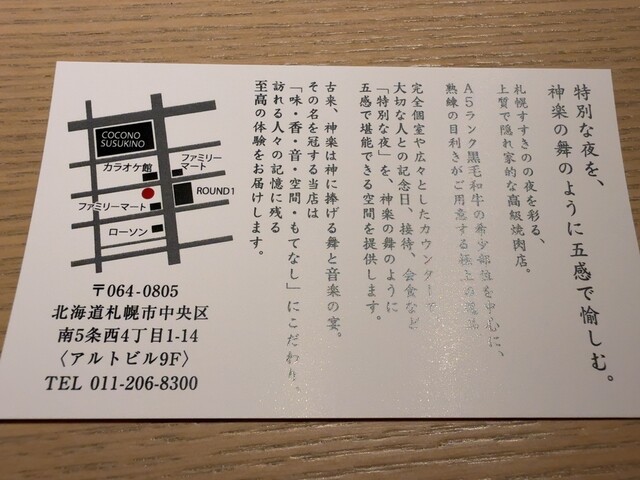 特別な夜を、
神楽の舞のように五感で愉しむ。
札幌すすきのの夜を彩る、
上質で隠れ家的な高級焼肉店。
A5ランク黒毛和牛の希少部位を中心に、
熟練の目利きがご用意する極上の
完全個室や広々としたカウンターで
大切な人との記念日、接待、会食など
「特別な夜」を、神楽の舞のように
五感で堪能できる空間を提供します。
古来、神楽は神に捧げる舞と音楽の宴。
その名を冠する当店は
「味・香・音・空間・もてなし」にこだわり、
訪れる人々の記憶に残る
至高の体験をお届けします。
COCONO
SUSUKINO
カラオケ館
ファミリー
マート
ROUND1
ファミリーマート
ローソン
〒064-0805
北海道札幌市中央区
南5条西4丁目1-14
〈アルトビル9F〉
TEL 011-206-8300